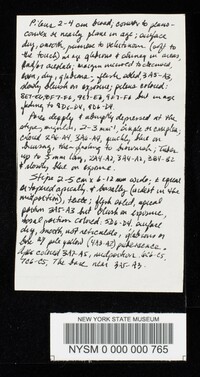 Pileus 2-4 cm broad; convex to plano-
convex or nearly plane in age; surface
dry, smooth, pruinose to velutinous (soft to
the touch) may glabrous & shiny in areas,
and/or areolate; margin incurved to decurved
even, dry, glabrous. flesh solid 3A5-A3,
slowly bluish on exposure; pileus colored:
but in age
fading to 9D6-D4, 8D6-D4.
Pores deeply & abruptly depressed at the
stipe, 2-3 mm⁻¹, simple or complex,
colored 3A8-A4, 3A4-A3, quickly blue on
bruising, then fading to brownish; tubes
up to 5 mm long, 2A4-A2, 3A4-A2,
& slowly blue on exposure.
Stipe 2-5 cm x 6-12 mm wide; ± equal
or tapered apically & basally (widest in the
midportion), terete; flesh solid, apical
portion 3A5-A3 but bluish on exposure,
basal portion colored: 5D6-D4. surface
dry, smooth, not reticulate, glabrous or
pale yellow (4A3-A2) pubescence.
colored 3A7-A5, midportion 6C6-C5,
7C6-C5; The base near 3A5-A3.
NEW YORK STATE MUSEUM
NYSM 0 000 000 765